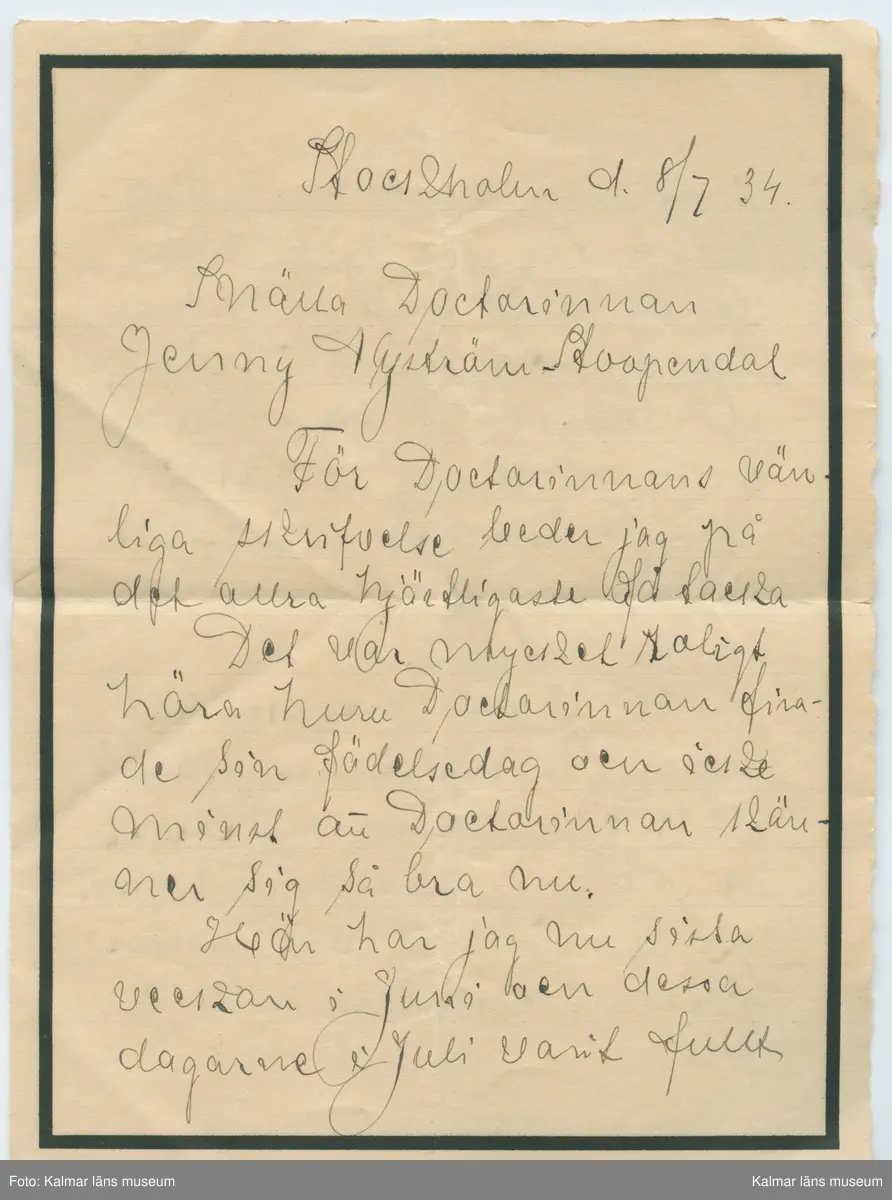 Stockholm d. 8/7 34.
Snälla Doctorinnan
Jenny Nyström Stoopendal
För Doctorinnans vän-
liga skrifvelse beder jag på
det allra hjärtligaste få tacka
Det var mycket roligt
höra huru Doctorinnan fira-
de sin födelsedag och icke
minst att Doctorinnan kän-
ner sig så bra nu.
Här har jag nu sista
veckan i Juni och dessa
dagarne i Juli varit fullt
Foto: Kalmar läns museum
Kalmar läns museum